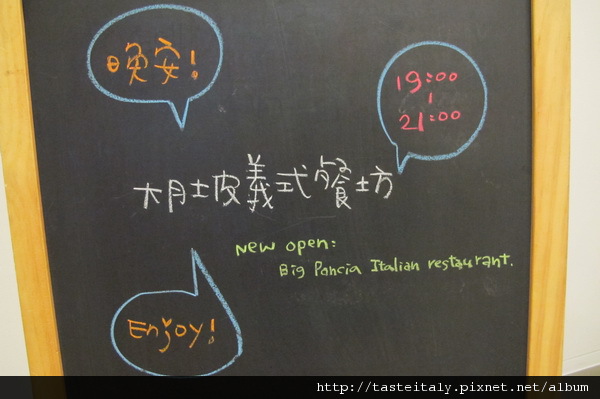 晚安!
19:00
|
21:00
大肚皮義式餐坊
New open:
Big Pancia Italian restaurant.
Enjoy!
http://tasteitaly.pixnet.net/album